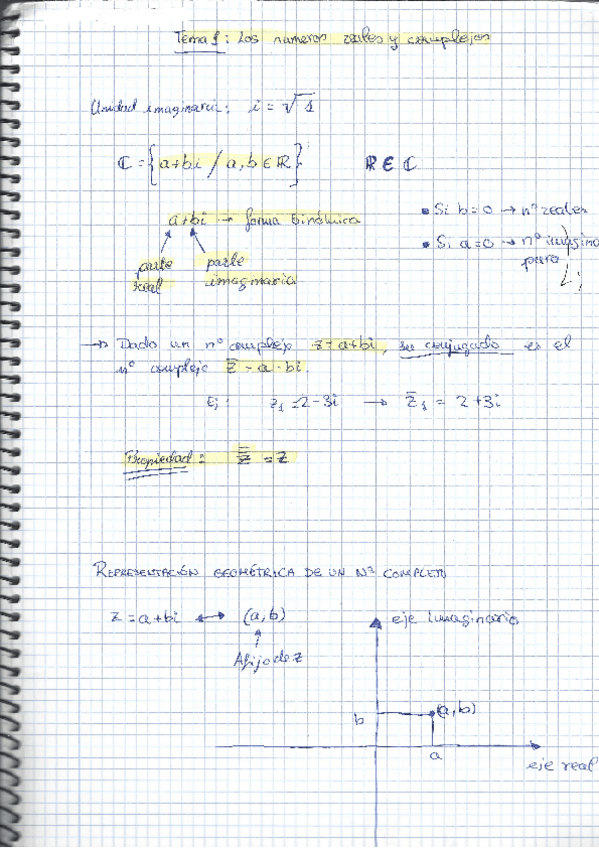 Tema 1: Los numeros reales y complejos
Unidad imaginaria: i = √1
ℂ = {a+bi / a, b ∈ ℝ} ℝ ∈ ℂ
a+bi → forma binómica
• Si b=0 → nº reales
parte real
parte imaginaria
• Si a=0 → nº imagina
puro
→ Dado un nº complejo z=a+bi, su conjugado es el
nº complejo z̄ = a - bi.
Ej: z₁ = 2-3i → z̄₁ = 2+3i
Propiedad: z̿ = z
REPRESENTACIÓN GEOMÉTRICA DE UN Nº COMPLEJO
z = a+bi ↔ (a,b)
Afijo de z
eje imaginario
b (a,b)
a
eje real